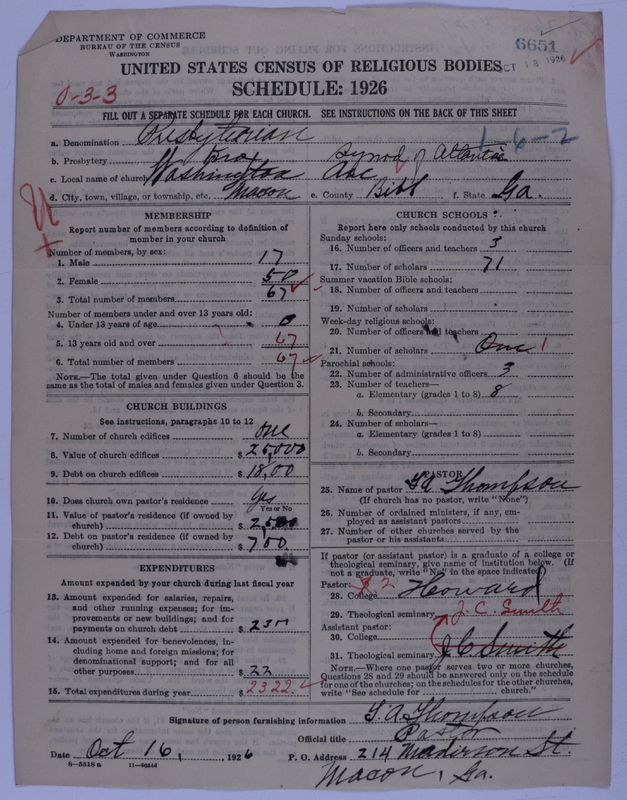 DEPARTMENT OF COMMERCE
BUREAU OF THE CENSUS
WASHINGTON
6651
OCT 18 1926
UNITED STATES CENSUS OF RELIGIOUS BODIES
SCHEDULE: 1926
0-3-3
FILL OUT A SEPARATE SCHEDULE FOR EACH CHURCH. SEE INSTRUCTIONS ON THE BACK OF THIS SHEET
1-6-2
a. Denomination Presbyterian
b. Presbytery Knox Synod of Atlantic
c. Local name of church Washington Ave
d. City, town, village, or township, etc. Macon e. County Bibb f. State Ga.
MEMBERSHIP
Report number of members according to definition of member in your church
Number of members, by sex:
1. Male 17
2. Female 50
3. Total number of members 67
Number of members under and over 13 years old:
4. Under 13 years of age 0
5. 13 years old and over 67
6. Total number of members 67
NOTE.—The total given under Question 6 should be the same as the total of males and females given under Question 3.
CHURCH BUILDINGS
See instructions, paragraphs 10 to 12
7. Number of church edifices One
8. Value of church edifices $ 25,000
9. Debt on church edifices $ 18,00
10. Does church own pastor's residence Yes
Yes or No
11. Value of pastor's residence (if owned by church) $ 2,500
12. Debt on pastor's residence (if owned by church) $ 700
EXPENDITURES
Amount expended by your church during last fiscal year
13. Amount expended for salaries, repairs, and other running expenses; for improvements or new buildings; and for payments on church debt $
14. Amount expended for benevolences, including home and foreign missions; for denominational support; and for all other purposes $ 22
15. Total expenditures during year $ 2322
CHURCH SCHOOLS
Report here only schools conducted by this church
Sunday schools:
16. Number of officers and teachers 3
17. Number of scholars 71
Summer vacation Bible schools:
18. Number of officers and teachers
19. Number of scholars
Week-day religious schools:
20. Number of officers and teachers
21. Number of scholars One 1
Parochial schools:
22. Number of administrative officers 3
23. Number of teachers—
a. Elementary (grades 1 to 8) 8
b. Secondary
24. Number of scholars—
a. Elementary (grades 1 to 8)
b. Secondary
PASTOR
25. Name of pastor G A Thompson
(If church has no pastor, write "None")
26. Number of ordained ministers, if any, employed as assistant pastors
27. Number of other churches served by the pastor or his assistants
If pastor (or assistant pastor) is a graduate of a college or theological seminary, give name of institution below. (If not a graduate, write "No" in the space indicated)
Pastor: 2
28. College Howard
29. Theological seminary J. C. Smith
Assistant pastor:
30. College
31. Theological seminary J C Smith
NOTE.—Where one pastor serves two or more churches, Questions 28 and 29 should be answered only on the schedule for one of the churches; on the schedules for the other churches, write "See schedule for church."
Signature of person furnishing information G. A. Thompson
Official title Pastor
Date Oct 16, 1926 P. O. Address 214 Madison St.
8-5518 a Macon, Ga.